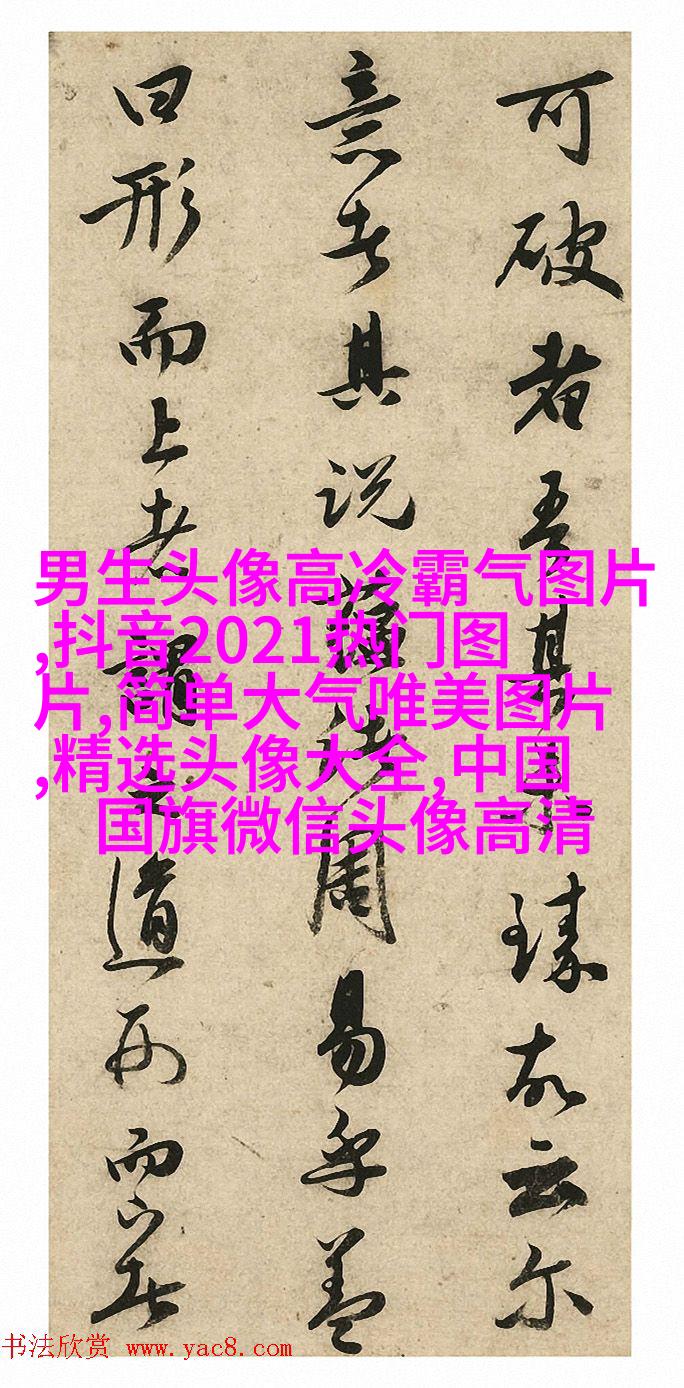 可破者吾其臻故云尔
意者其说法周易乎盖
曰形而上者謂之道形而下者
男生头像高冷霸气图片
,抖音2021热门图
片,简单大气唯美图片
,精选头像大全,中国
国旗微信头像高清
书法欣赏 www.yac8.com